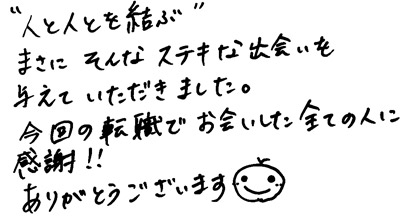 "人と人とを結ぶ"
まさに そんな ステキな出会いを
与えて いただきました。
今回の転職で お会いした全ての人に
感謝!!
ありがとうございます